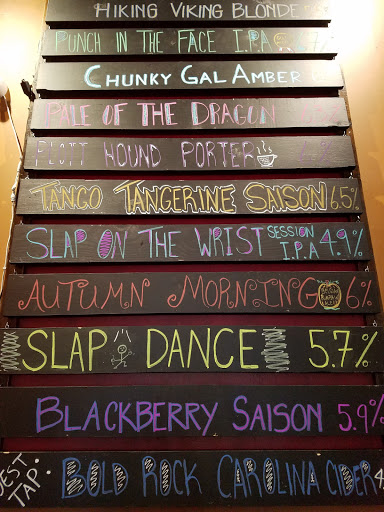 HIKING VIKING BLONDE
PUNCH IN THE FACE I.P.A
CHUNKY GAL AMBER
PALE OF THE DRAGON
PLOTT HOUND PORTER
TANGO TANGERINE SAISON 6.5%
SLAP ON THE WRIST SESSION I.P.A 4.9%
AUTUMN MORNING 6%
SLAP DANCE 5.7%
BLACKBERRY SAISON 5.9%
GUEST TAP: BOLD ROCK CAROLINA CIDER 4